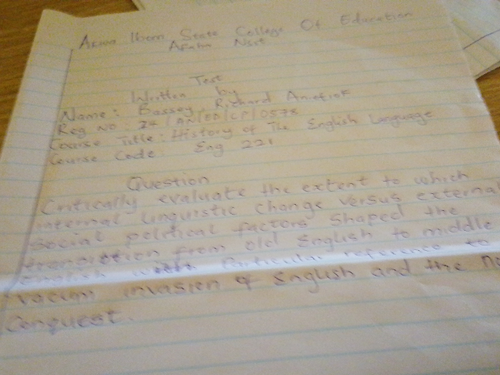 Akwa Ibom State College Of Education
Afaha Nsit
Test
Written by
Name: Bassey, Richard
Reg no: 24
Course Title: History of The English Language
Course Code: Eng 221
Question
Critically evaluate the extent to which
internal linguistic change versus external
social political factors shaped the
transition from old English to middle
English with Particular reference to
invasion of English and the
Conquest.